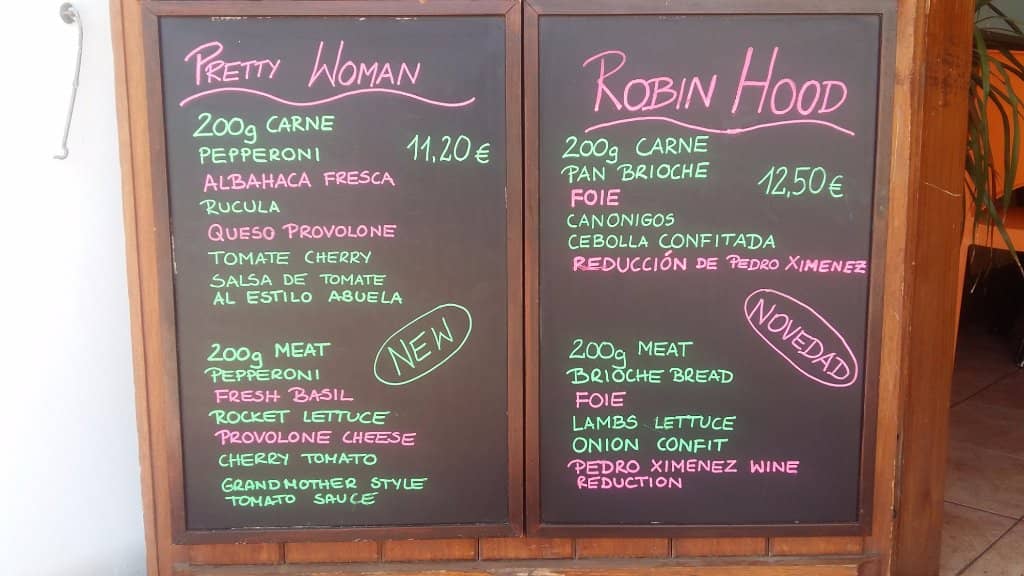 PRETTY WOMAN
200g CARNE
PEPPERONI
11,20 €
ALBAHACA FRESCA
RUCULA
QUESO PROVOLONE
TOMATE CHERRY
SALSA DE TOMATE
AL ESTILO ABUELA
NEW
200g MEAT
PEPPERONI
FRESH BASIL
ROCKET LETTUCE
PROVOLONE CHEESE
CHERRY TOMATO
GRANDMOTHER STYLE
TOMATO SAUCE
ROBIN HOOD
200g CARNE
PAN BRIOCHE
12,50 €
FOIE
CANONIGOS
CEBOLLA CONFITADA
REDUCCIÓN DE PEDRO XIMENEZ
NOVEDAD
200g MEAT
BRIOCHE BREAD
FOIE
LAMBS LETTUCE
ONION CONFIT
PEDRO XIMENEZ WINE
REDUCTION